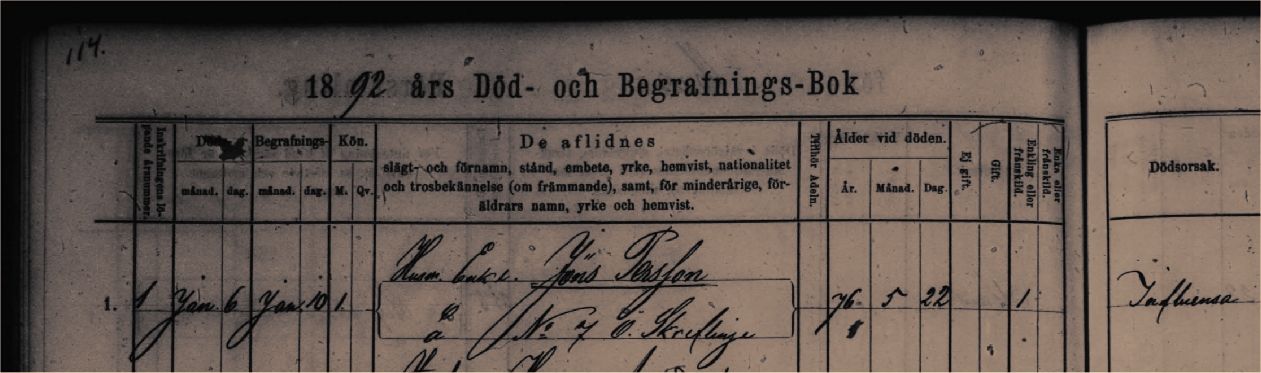 114.
1892 års Död- och Begrafnings-Bok
Inskrifningens lö-
pande årsnummer.
Begrafnings-
månad. dag. månad. dag.
Kön.
M. Qv.
De aflidnes
slägt- och förnamn, stånd, embete, yrke, hemvist, nationalitet
och trosbekännelse (om främmande), samt, för minderårige, för-
äldrars namn, yrke och hemvist.
Tillhör Adeln.
Ålder vid döden.
År. Månad. Dag.
Ej gift.
Gift.
Enkling eller
frånskild.
Enka eller
frånskild.
Dödsorsak.
Husm. Enkl. Jöns Persson
1. 1 Jan 6 Jan. 10 1. 76 5 22 1 Influensa
å No 7 Ö. Skreflinge